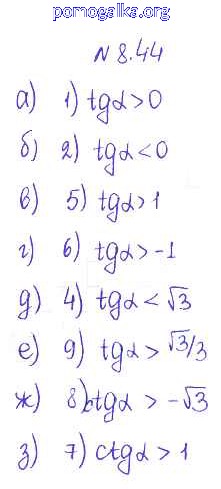 pomogalka.org
N 8.44
а) 1) tgα>0
б) 2) tgα<0
в) 5) tgα>1
г) 6) tgα>-1
д) 4) tgα<√3
е) 9) tgα>√3/3
ж) 8) ctgα>-√3
з) 7) ctgα>1